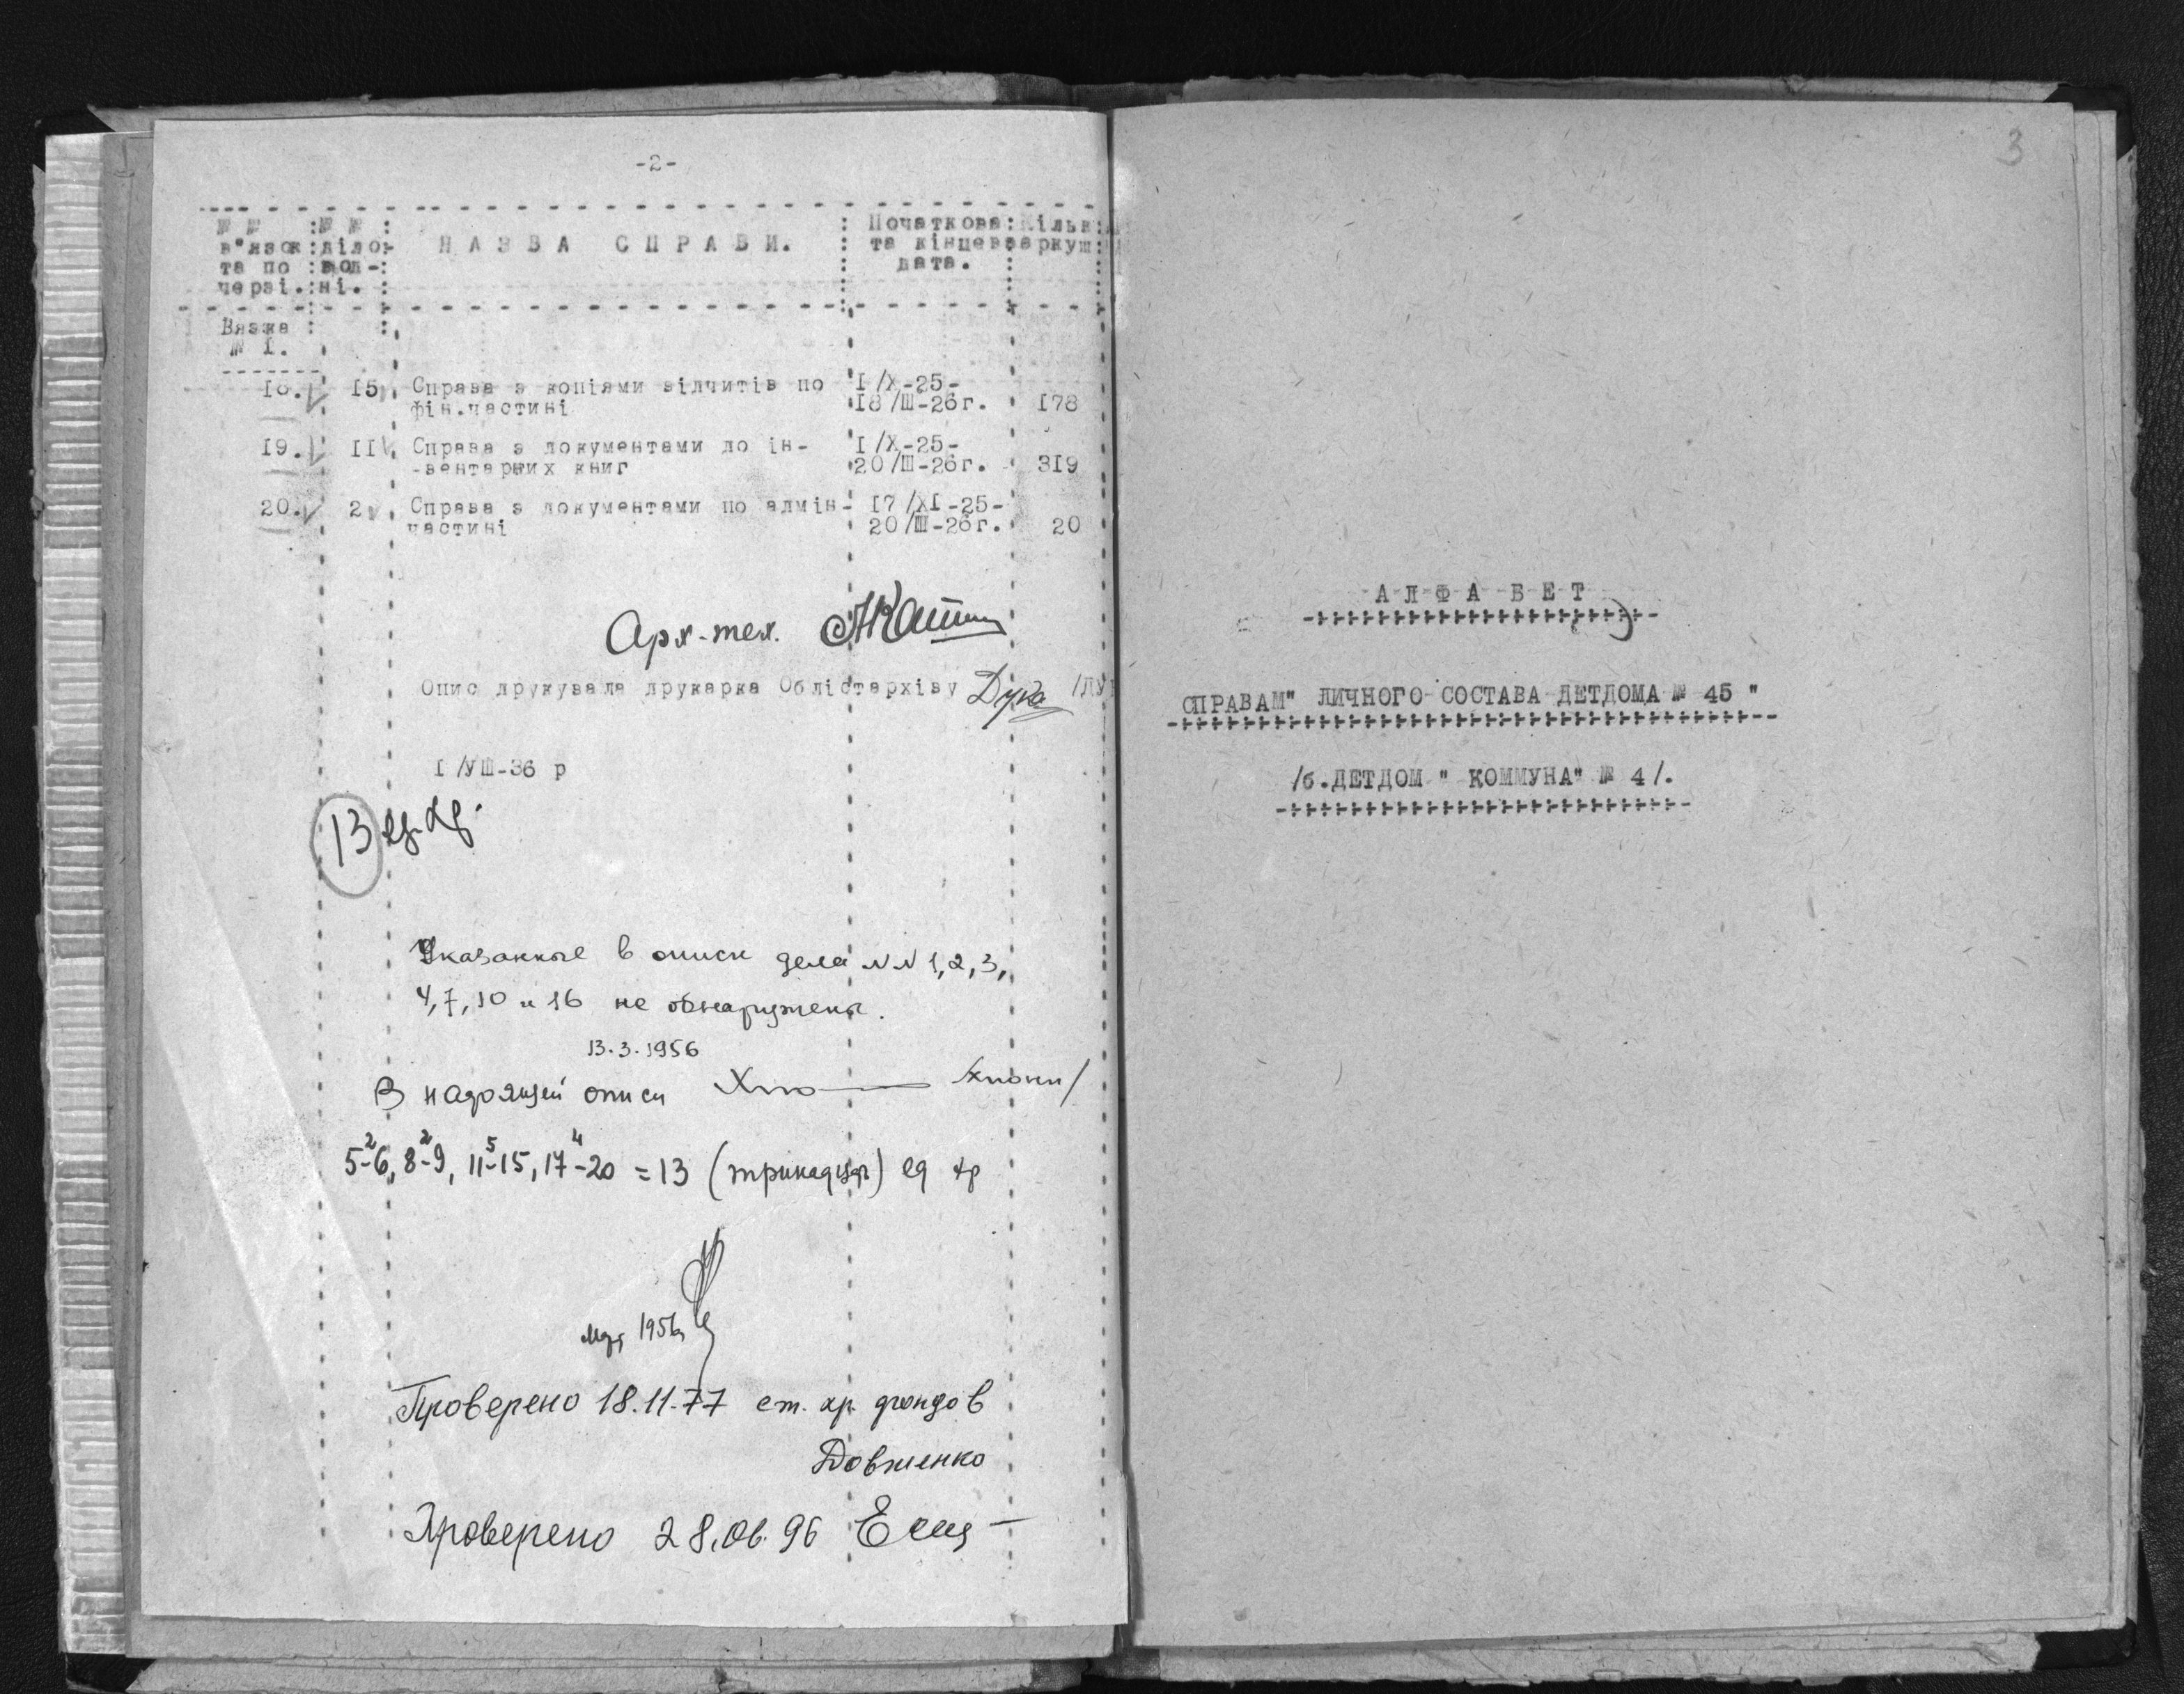 -2-
№ № :№ № : Початкова: Кільк:
в"язок:діло- НАЗВА СПРАВИ. : та кінцева аркуш:
та по :вод-: дата.
черзі.:ні. :
Вязка
№ I.
18. 15 Справа з копіями відчитів по I/X-25-
фін.частині 18/Ш-26г. 178
19. II Справа з документами до ін- I/X-25-
-вентарних книг 20/Ш-26г. 319
20. 2 Справа з документами по адмін- 17/XI-25-
частині 20/Ш-26г. 20
Арх-тех.
Опис друкувала друкарка Облістархіву Дука /ДУ
I/УШ-36 р
13 ед. хр.
Указанные в описи дела NN 1,2,3,
4,7,10 и 16 не обнаружены.
13.3.1956
В настоящей описи
5-6, 8-9, 11-15, 17-20 = 13 (тринадцать) ед хр
2 2 5 4
1956
Проверено 18.11.77 ст. хр. фондов
Довженко
Проверено 28.06.96
3
АЛФАБЕТ
СПРАВАМ" ЛИЧНОГО СОСТАВА ДЕТДОМА № 45 "
/б.ДЕТДОМ " КОММУНА" № 4/.